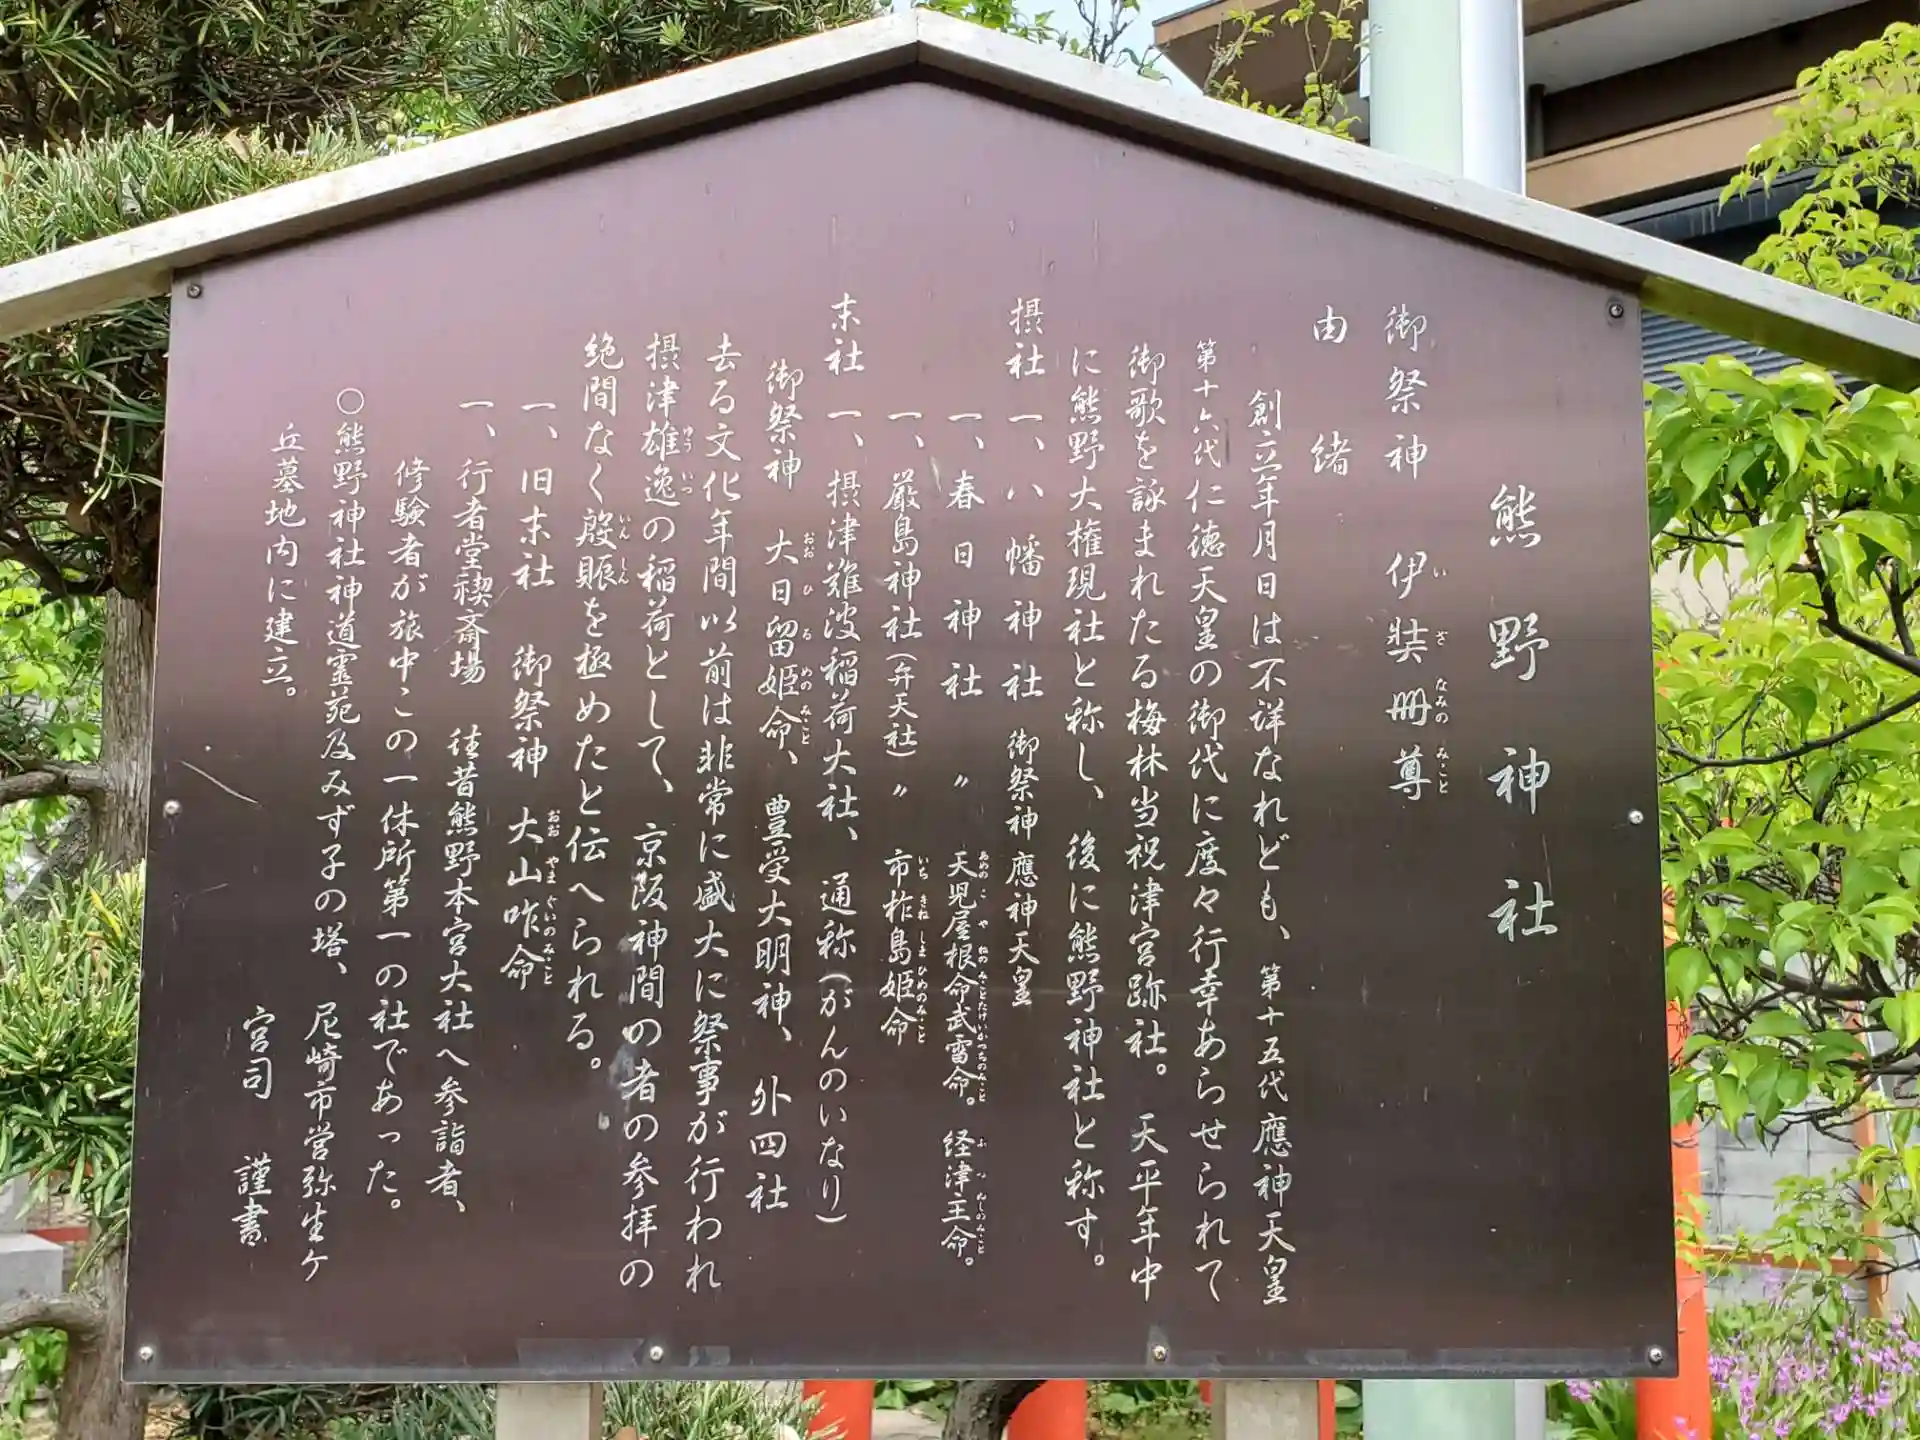 熊野神社
御祭神 伊弉冊尊
由緒
創立年月日は不詳なれども、第十五代應神天皇
第十六代仁徳天皇の御代に度々行幸あらせられて
御歌を詠まれたる梅林当祝津宮跡社。天平年中
に熊野大権現社と称し、後に熊野神社と称す。
摂社 一、八幡神社 御祭神應神天皇
一、春日神社 〃 天児屋根命武雷命。経津主命。
一、厳島神社(弁天社)〃 市杵島姫命
末社 一、摂津難波稲荷大社、通称(がんのいなり)
御祭神 大日留姫命、豊受大明神、外四社
去る文化年間以前は非常に盛大に祭事が行われ
摂津雄逸の稲荷として、京阪神間の者の参拝の
絶間なく殷賑を極めたと伝へられる。
一、旧末社 御祭神 大山咋命
一、行者堂禊斎場 往昔熊野本宮大社へ参詣者、
修験者が旅中この一休所第一の社であった。
○熊野神社神道霊苑及みず子の塔、尼崎市営弥生ケ
丘墓地内に建立。
宮司 謹書